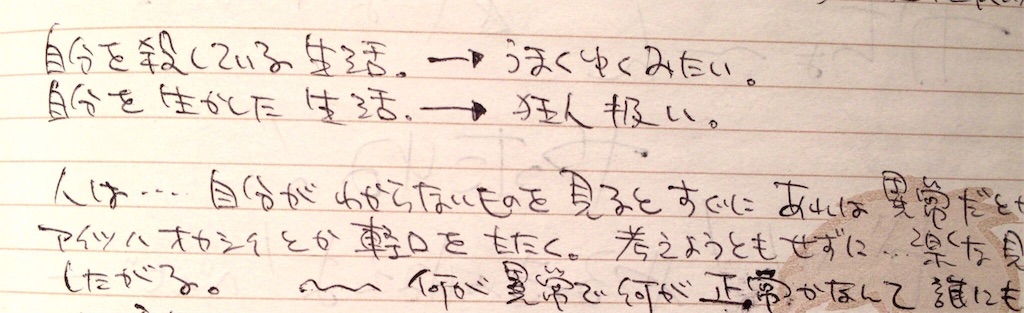 自分を殺している生活。→うまくゆくみたい。
自分を生かした生活。→狂人扱い。
人は‥‥自分がわからないものを見るとすぐにあれは異常だとか
アイツハオカシイとか軽口をたたく。考えようともせずに‥楽な見
したがる。 〜〜 何が異常で何が正常かなんて誰にも